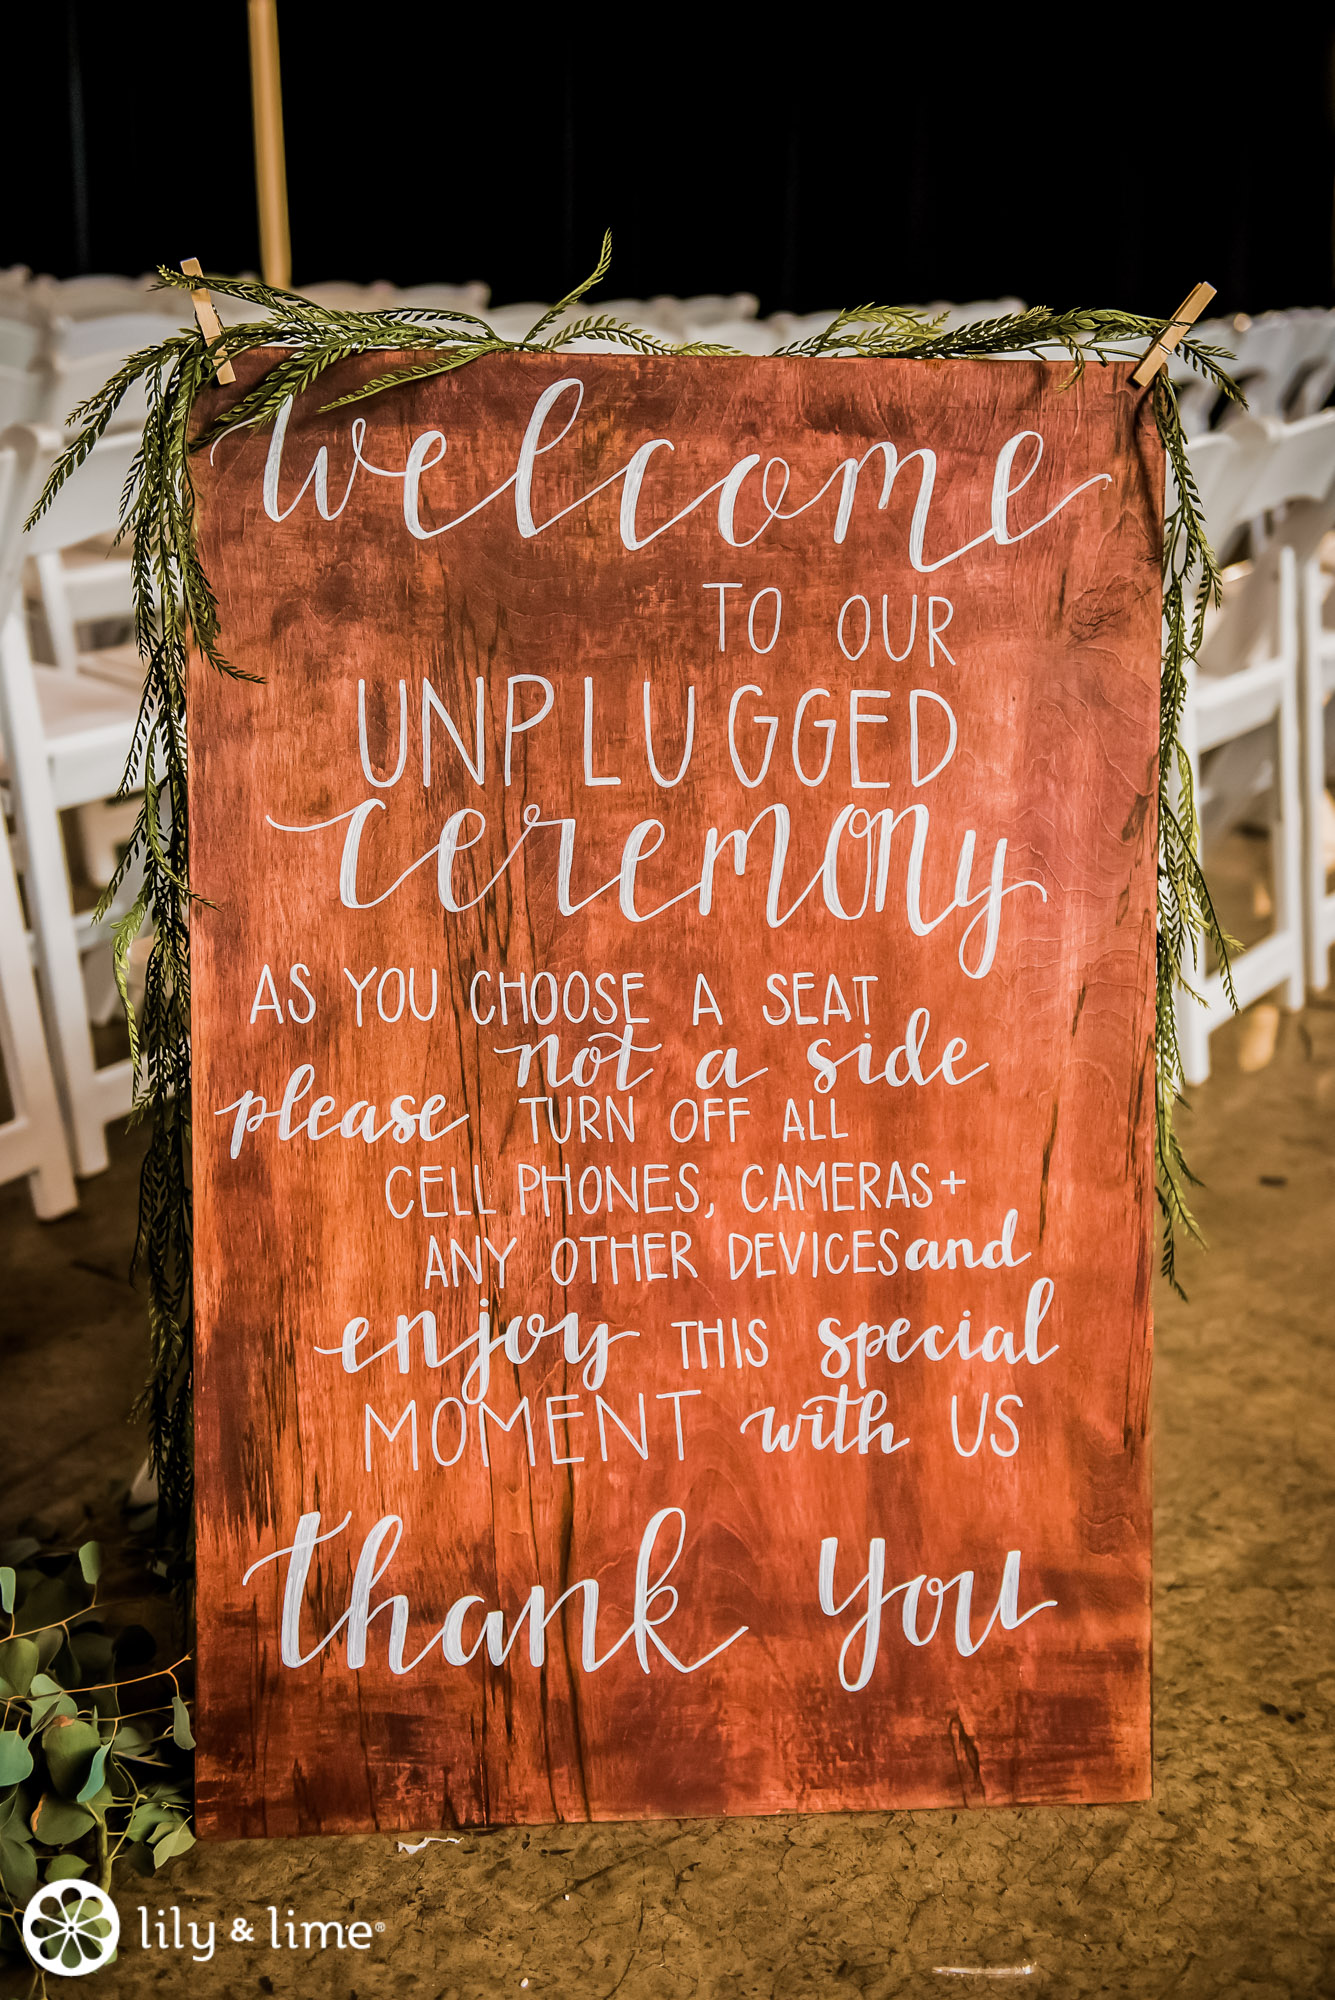 welcome
TO OUR
UNPLUGGED
ceremony
AS YOU CHOOSE A SEAT
not a side
please TURN OFF ALL
CELL PHONES, CAMERAS+
ANY OTHER DEVICES and
enjoy THIS special
MOMENT with US
thank you
lily & lime®